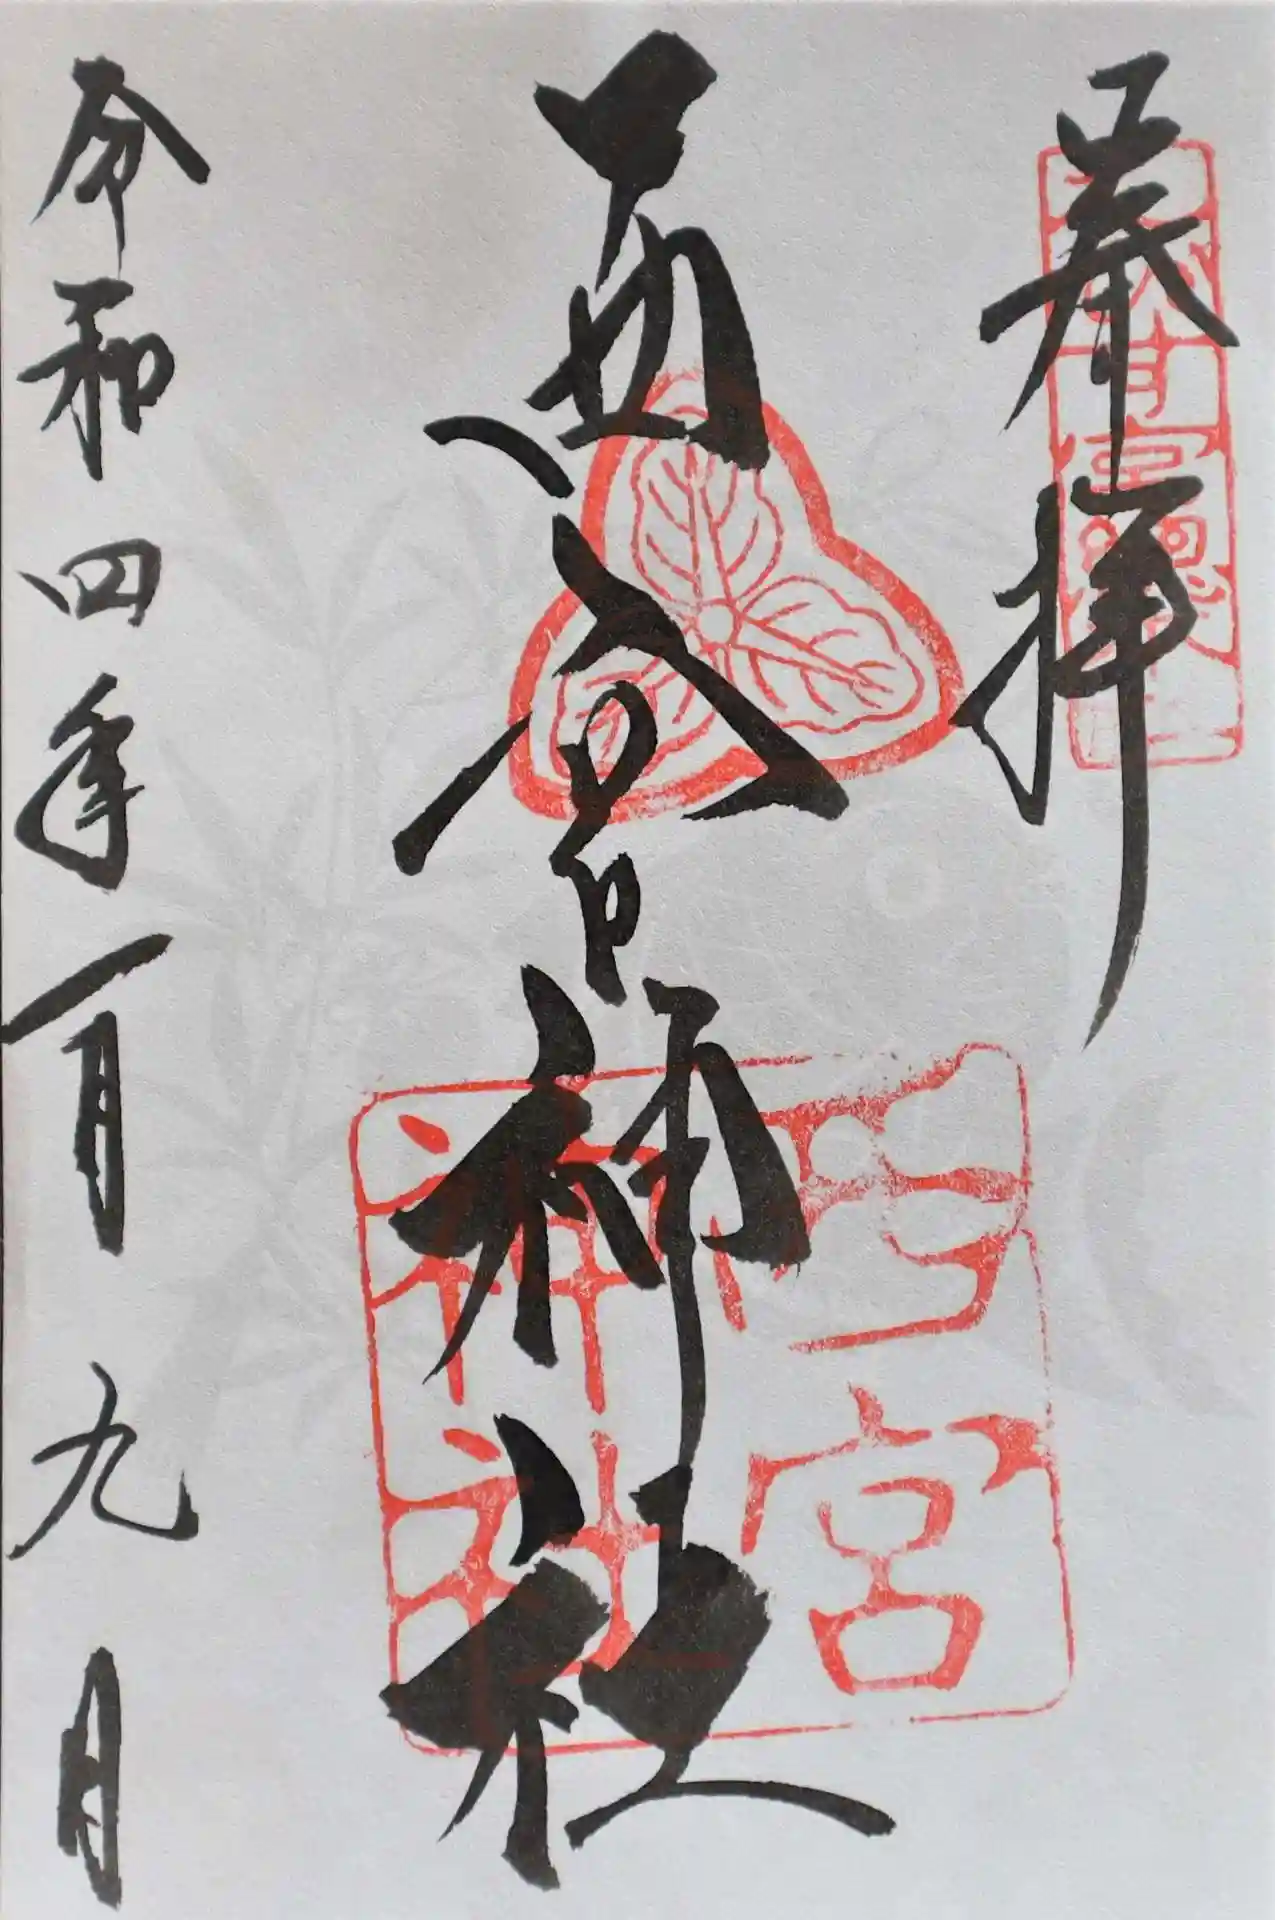 奉拝
西宮神社
西宮神社
令和四年一月九日